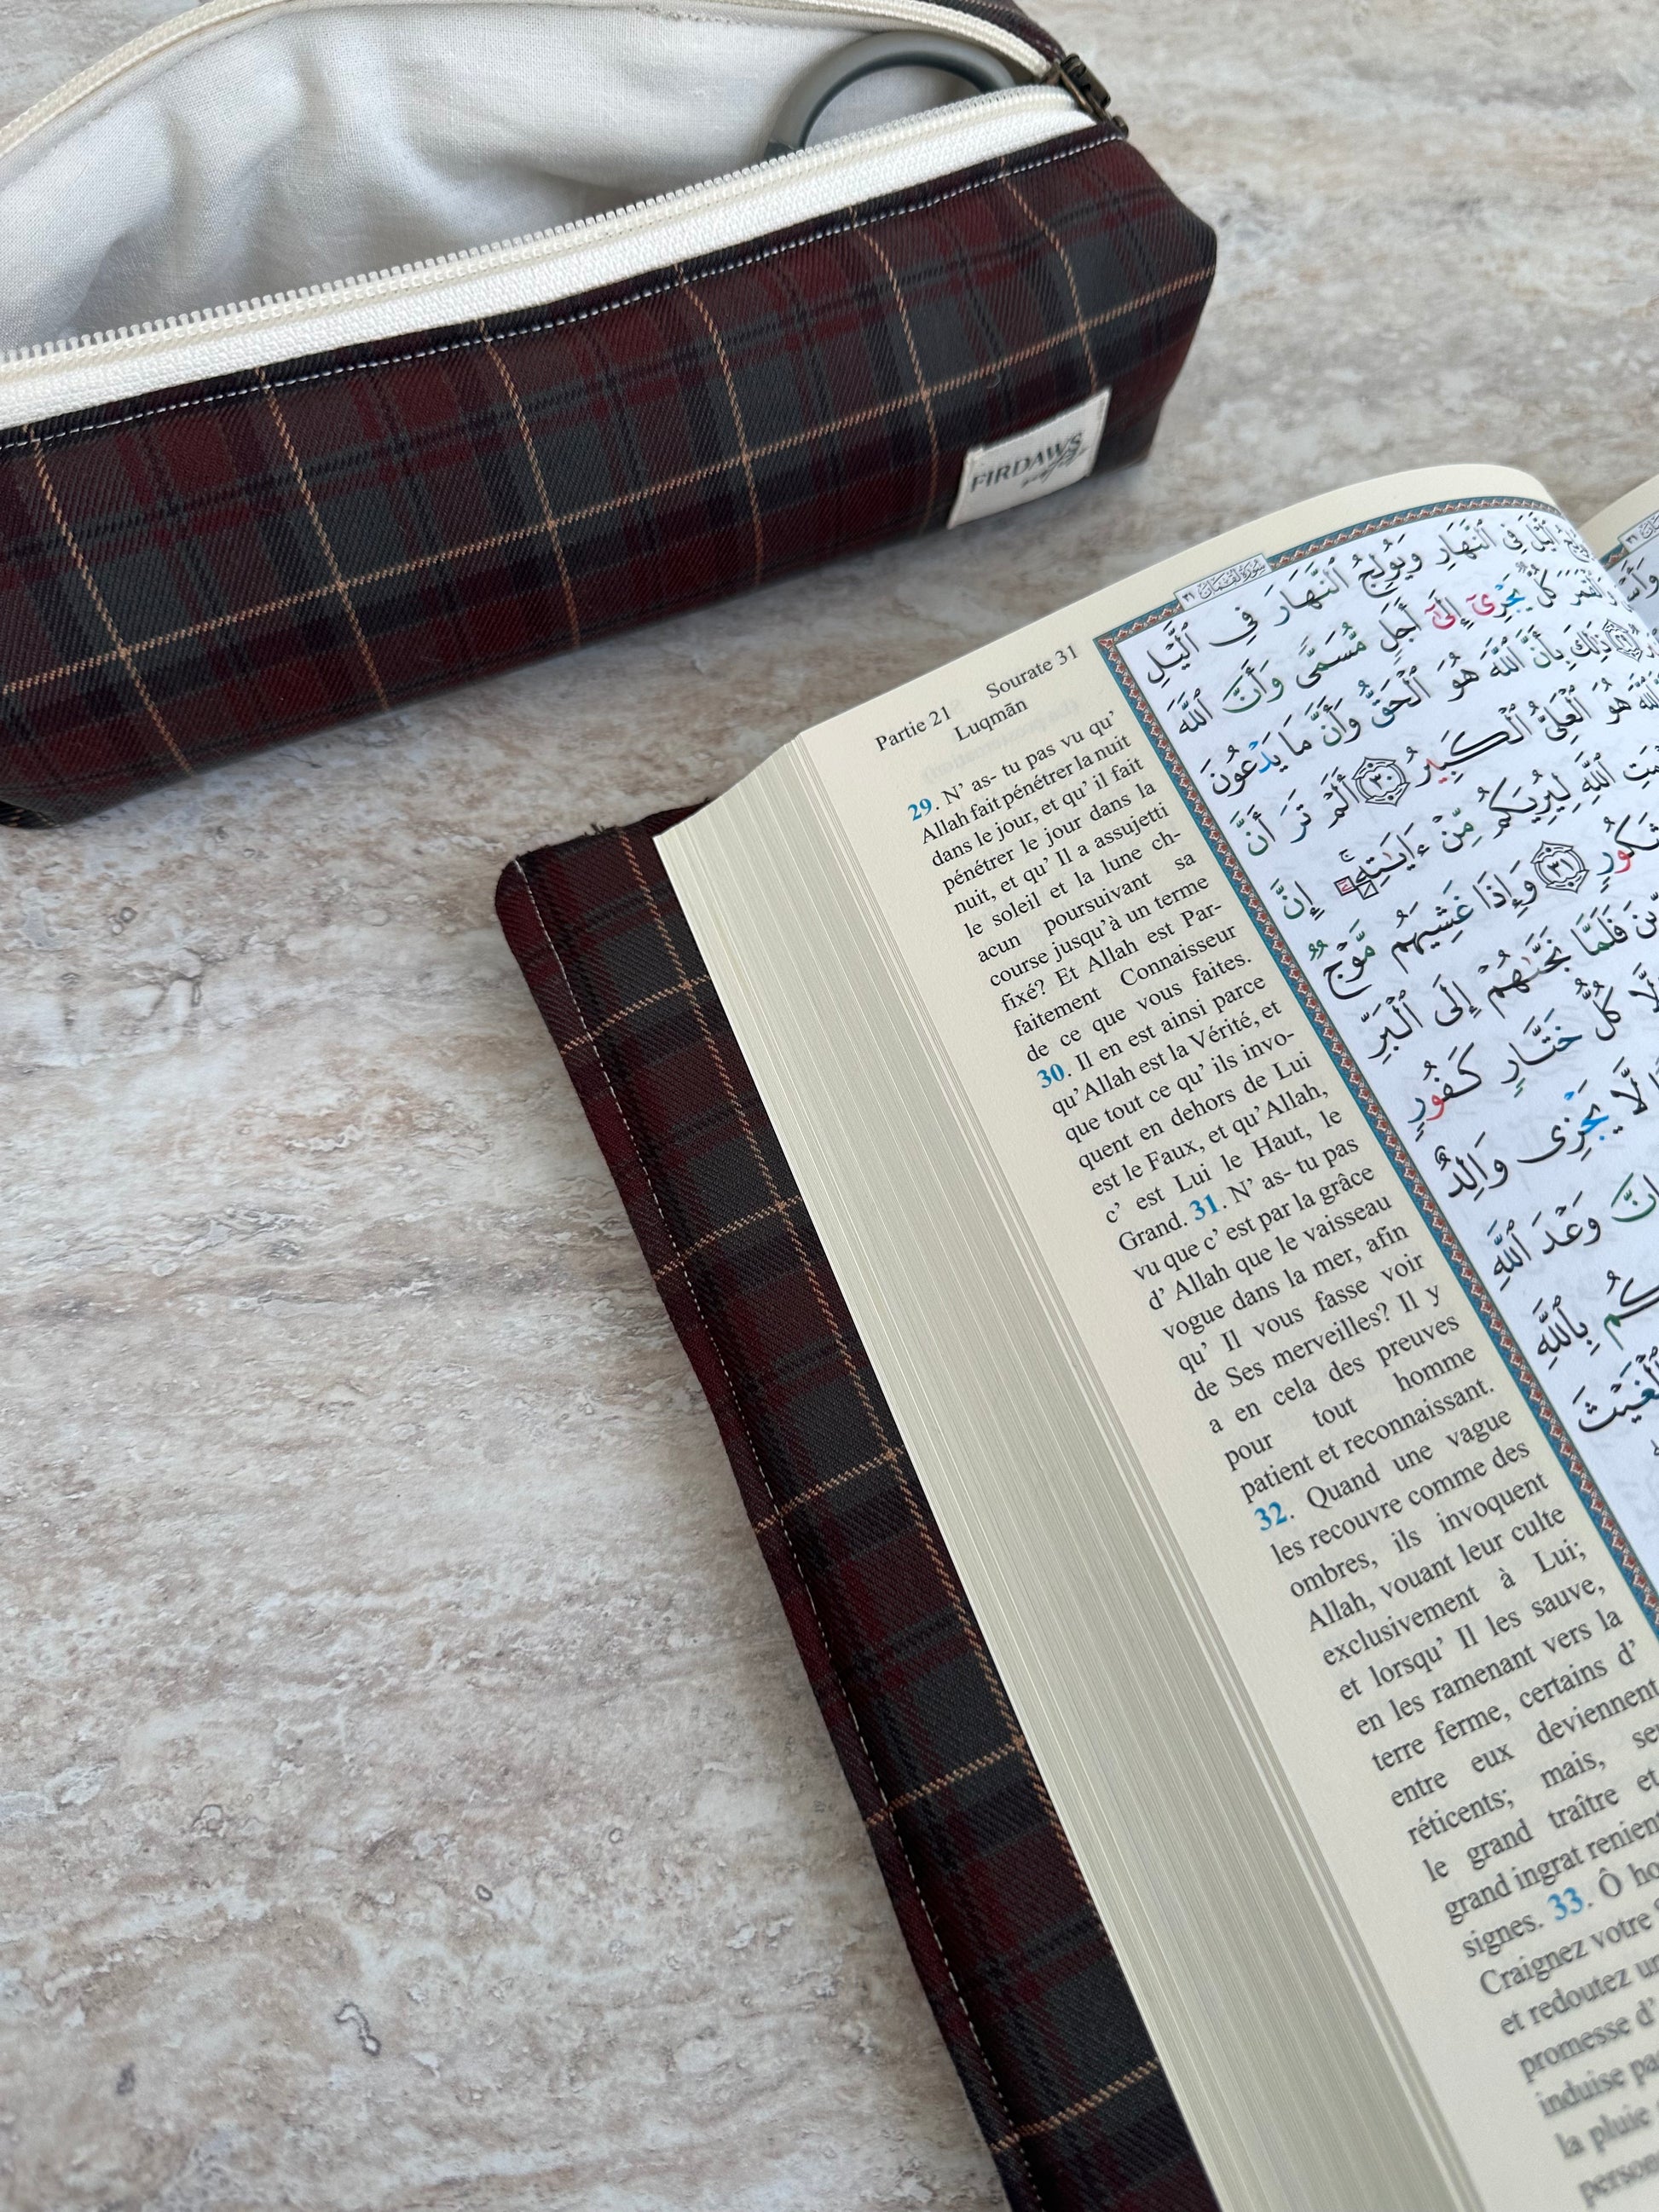 FIRDAWS
Partie 21
Sourate 31
Luqmān
29. N' as- tu pas vu qu'
Allah fait pénétrer la nuit
dans le jour, et qu' il fait
pénétrer le jour dans la
nuit, et qu' Il a assujetti
le soleil et la lune ch-
acun poursuivant sa
course jusqu'à un terme
fixé? Et Allah est Par-
faitement Connaisseur
de ce que vous faites.
30. Il en est ainsi parce
qu'Allah est la Vérité, et
que tout ce qu' ils invo-
quent en dehors de Lui
est le Faux, et qu'Allah,
c' est Lui le Haut, le
Grand. 31. N' as- tu pas
vu que c' est par la grâce
d' Allah que le vaisseau
vogue dans la mer, afin
qu' Il vous fasse voir
de Ses merveilles? Il y
a en cela des preuves
pour tout homme
patient et reconnaissant.
32. Quand une vague
les recouvre comme des
ombres, ils invoquent
Allah, vouant leur culte
exclusivement à Lui;
et lorsqu' Il les sauve,
en les ramenant vers la
terre ferme, certains d'
entre eux deviennent
réticents; mais,
le grand traître et
grand ingrat renient
signes. 33. Ô
Craignez votre
et redoutez
promesse d'
induise
la pluie
سورة لقمان ٣١
ٱلَّيْلَ فِي ٱلنَّهَارِ وَيُولِجُ ٱلنَّهَارَ فِي ٱلَّيْلِ
وَٱلْقَمَرَ كُلٌّ يَجْرِىٓ إِلَىٰٓ أَجَلٍ مُّسَمًّى وَأَنَّ ٱللَّهَ
ذَٰلِكَ بِأَنَّ ٱللَّهَ هُوَ ٱلْحَقُّ وَأَنَّ مَا يَدْعُونَ
ٱللَّهَ هُوَ ٱلْعَلِىُّ ٱلْكَبِيرُ ٣٠ أَلَمْ تَرَ أَنَّ
ٱللَّهِ لِيُرِيَكُم مِّنْ ءَايَٰتِهِۦٓ إِنَّ
شَكُورٍ ٣١ وَإِذَا غَشِيَهُم مَّوْجٌ
فَلَمَّا نَجَّىٰهُمْ إِلَى ٱلْبَرِّ
كُلُّ خَتَّارٍ كَفُورٍ
لَّا يَجْزِى وَالِدٌ
وَعْدَ ٱللَّهِ
بِٱللَّهِ
ٱلْغَيْثَ